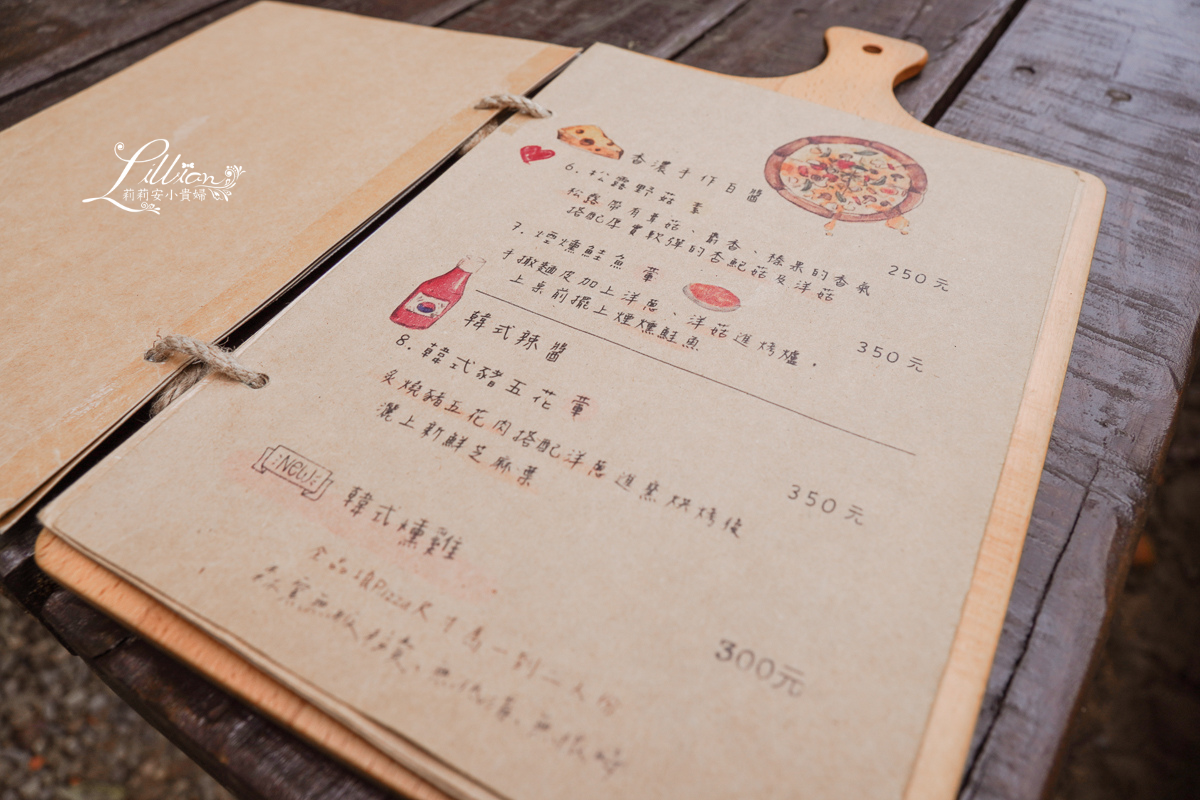 Lillian
莉莉安小貴婦
香濃手作白醬
6. 松露野菇 素 250元
松露帶有蕈菇、麝香、榛果的香氣
搭配厚實軟彈的杏鮑菇及洋菇
7. 煙燻鮭魚 葷 350元
手撖麵皮加上洋蔥、洋菇進烤爐，
上桌前擺上煙燻鮭魚
韓式辣醬
8. 韓式豬五花 葷 350元
炙燒豬五花肉搭配洋蔥進窯烘烤後
灑上新鮮芝麻葉
NEW
韓式燻雞 300元
全品項Pizza尺寸為一到二人份
本窯無服務費、無低消、無限時